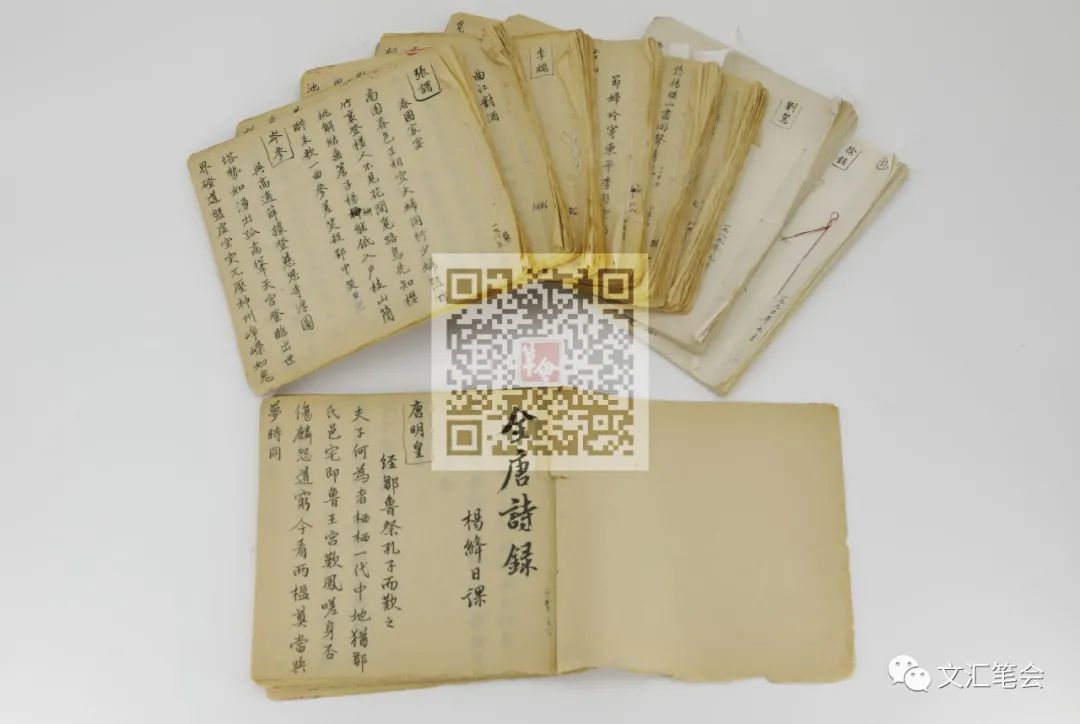 張謂
春園家宴
南園春色正相宜大婦同行少婦隨
竹裏登樓人不見花間覓路鳥先知櫻
桃解結垂簷子楊柳能低入户枝山簡
醉來歌一曲參差笑殺郢中兒
岑參
與高適薛據登慈恩寺浮圖
塔勢如湧出孤高聳天宮登臨出世
界磴道盤虚空突兀壓神州崢嶸如鬼
曲江對酒
李端
1986
節婦吟寄東平李司空
徐鉉
全唐詩録
楊絳日課
唐明皇
经鄒魯祭孔子而歎之
夫子何為者栖栖一代中地猶鄹
氏邑宅即魯王宮歎鳳嗟身否
傷麟怨道窮今看兩楹奠當與
夢時同
笔會
文汇笔会